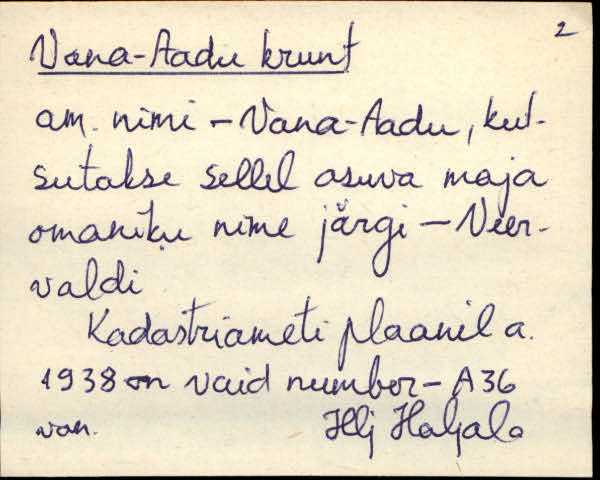 2
Vana-Aadu krunt
am. nimi – Vana-Aadu, kut-
sutakse sellel asuva maja
omaniku nime järgi – Veer-
valdi
Kadastriameti plaanil a.
1938 on vaid number – A36
van. Hlj Haljala